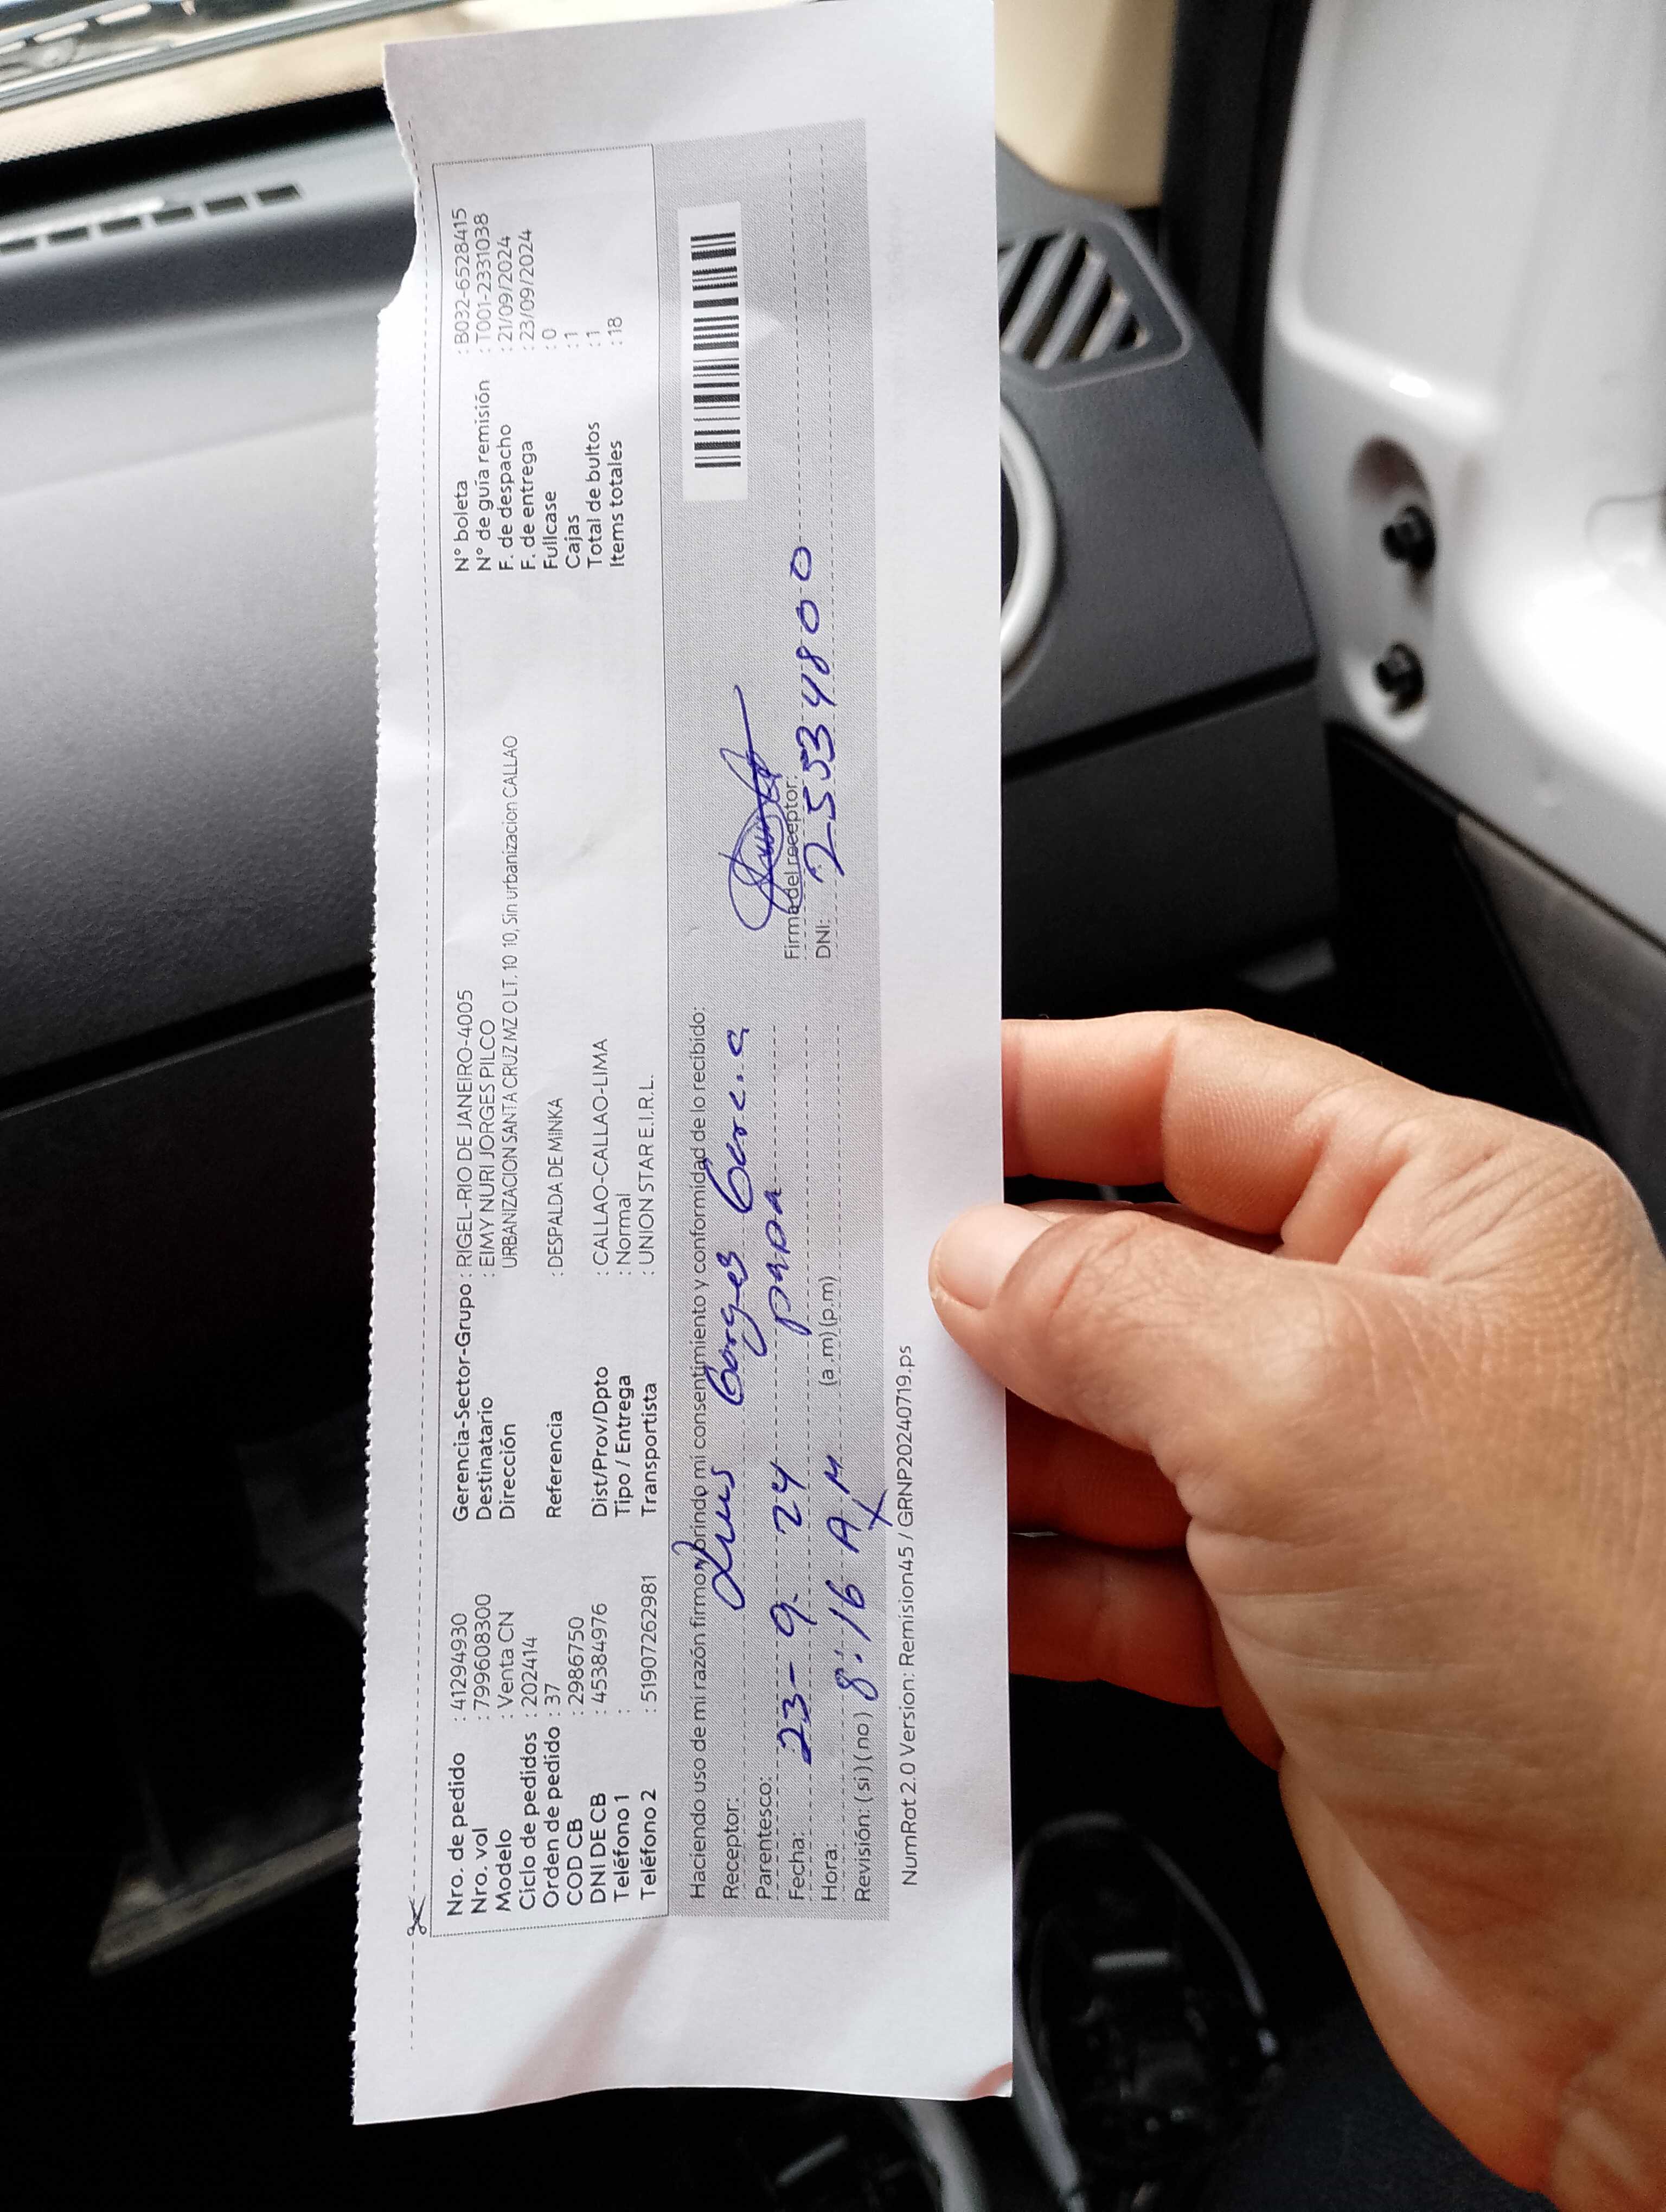 Nro. de pedido : 41294930 Gerencia-Sector-Grupo : RIGEL-RIO DE JANEIRO-4005 N° boleta : B032-6528415
Nro. vol : 799608300 Destinatario : EIMY NURI JORGES PILCO N° de guía remisión : T001-2331038
Modelo : Venta CN Dirección URBANIZACION SANTA CRUZ MZ O LT. 10 10, Sin urbanizacion CALLAO F. de despacho : 21/09/2024
Ciclo de pedidos : 202414 F. de entrega : 23/09/2024
Orden de pedido : 37 Referencia : DESPALDA DE MINKA Fullcase : 0
COD CB : 2986750 Cajas : 1
DNI DE CB : 45384976 Dist/Prov/Dpto : CALLAO-CALLAO-LIMA Total de bultos : 1
Teléfono 1 : Tipo / Entrega : Normal Items totales : 18
Teléfono 2 : 51907262981 Transportista : UNION STAR E.I.R.L.
Haciendo uso de mi razón firmo y brindo mi consentimiento y conformidad de lo recibido:
Receptor: Luis Gorges Garcia
Parentesco: papa Firma del receptor:
Fecha: 23-9-24 DNI: 25534800
Hora: 8:16 AM (a.m) (p.m)
Revisión: (si) (no) X
NumRot 2.0 Version: Remision45 / GRNP20240719.ps